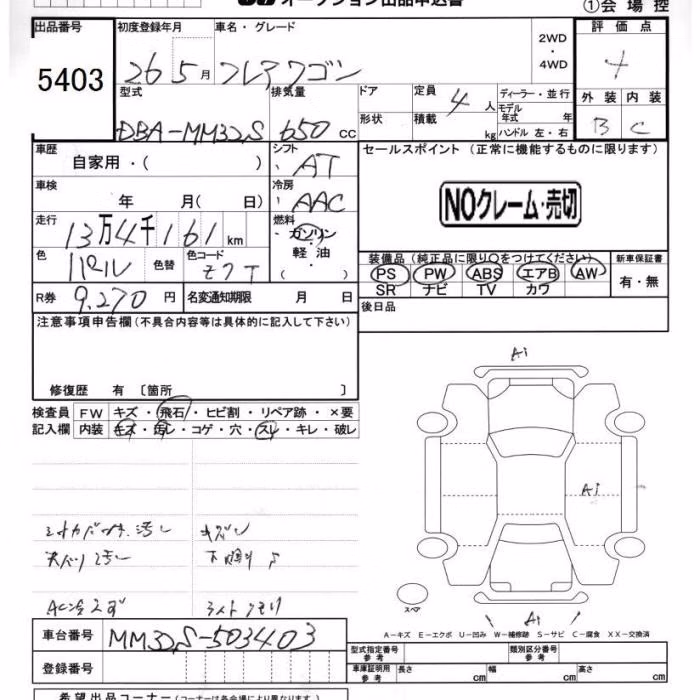 オークション出品申込書
①会場控
出品番号
5403
初度登録年月
26 5月
車名・グレード
フレアワゴン
2WD
・
4WD
評価点
4
外装 内装
B C
型式
DBA-MM32S
排気量
650 cc
ドア
形状
定員
4人
積載
kg
ディーラー・並行
モデル年式 年
ハンドル 左・右
車歴
自家用・( )
シフト
AT
セールスポイント (正常に機能するものに限ります)
NOクレーム・売切
車検
年 月( 日)
冷房
AAC
走行
13万4千161km
燃料
ガソリン
・
軽油
・
( )
色
パール
色替
色コード
Z7T
装備品(純正品に限り○をつけてください)
PS PW ABS エアB AW
SR ナビ TV カワ
新車保証書
有・無
R券
9,270円
名変通知期限 月 日
後日品
注意事項申告欄(不具合内容等は具体的に記入して下さい)
修復歴 有 〔箇所 〕
検査員
記入欄
FW キズ・飛石・ヒビ割・リペア跡・×要
内装 キズ・汚レ・コゲ・穴・スレ・キレ・破レ
汚レ キズレ
天バリ汚レ 下廻りサ
AC冷えず ライトクモリ
Ai
Ai
Ai
スペア
A－キズ E－エクボ U－凹み W－補修跡 S－サビ C－腐食 XX－交換済
車台番号
MM32S-503403
登録番号
型式指定番号
参考
類別区分番号
参考
車庫証明用
参考
長さ cm 幅 cm 高さ cm
希望出品コーナー(コーナーは各会場により異なります)